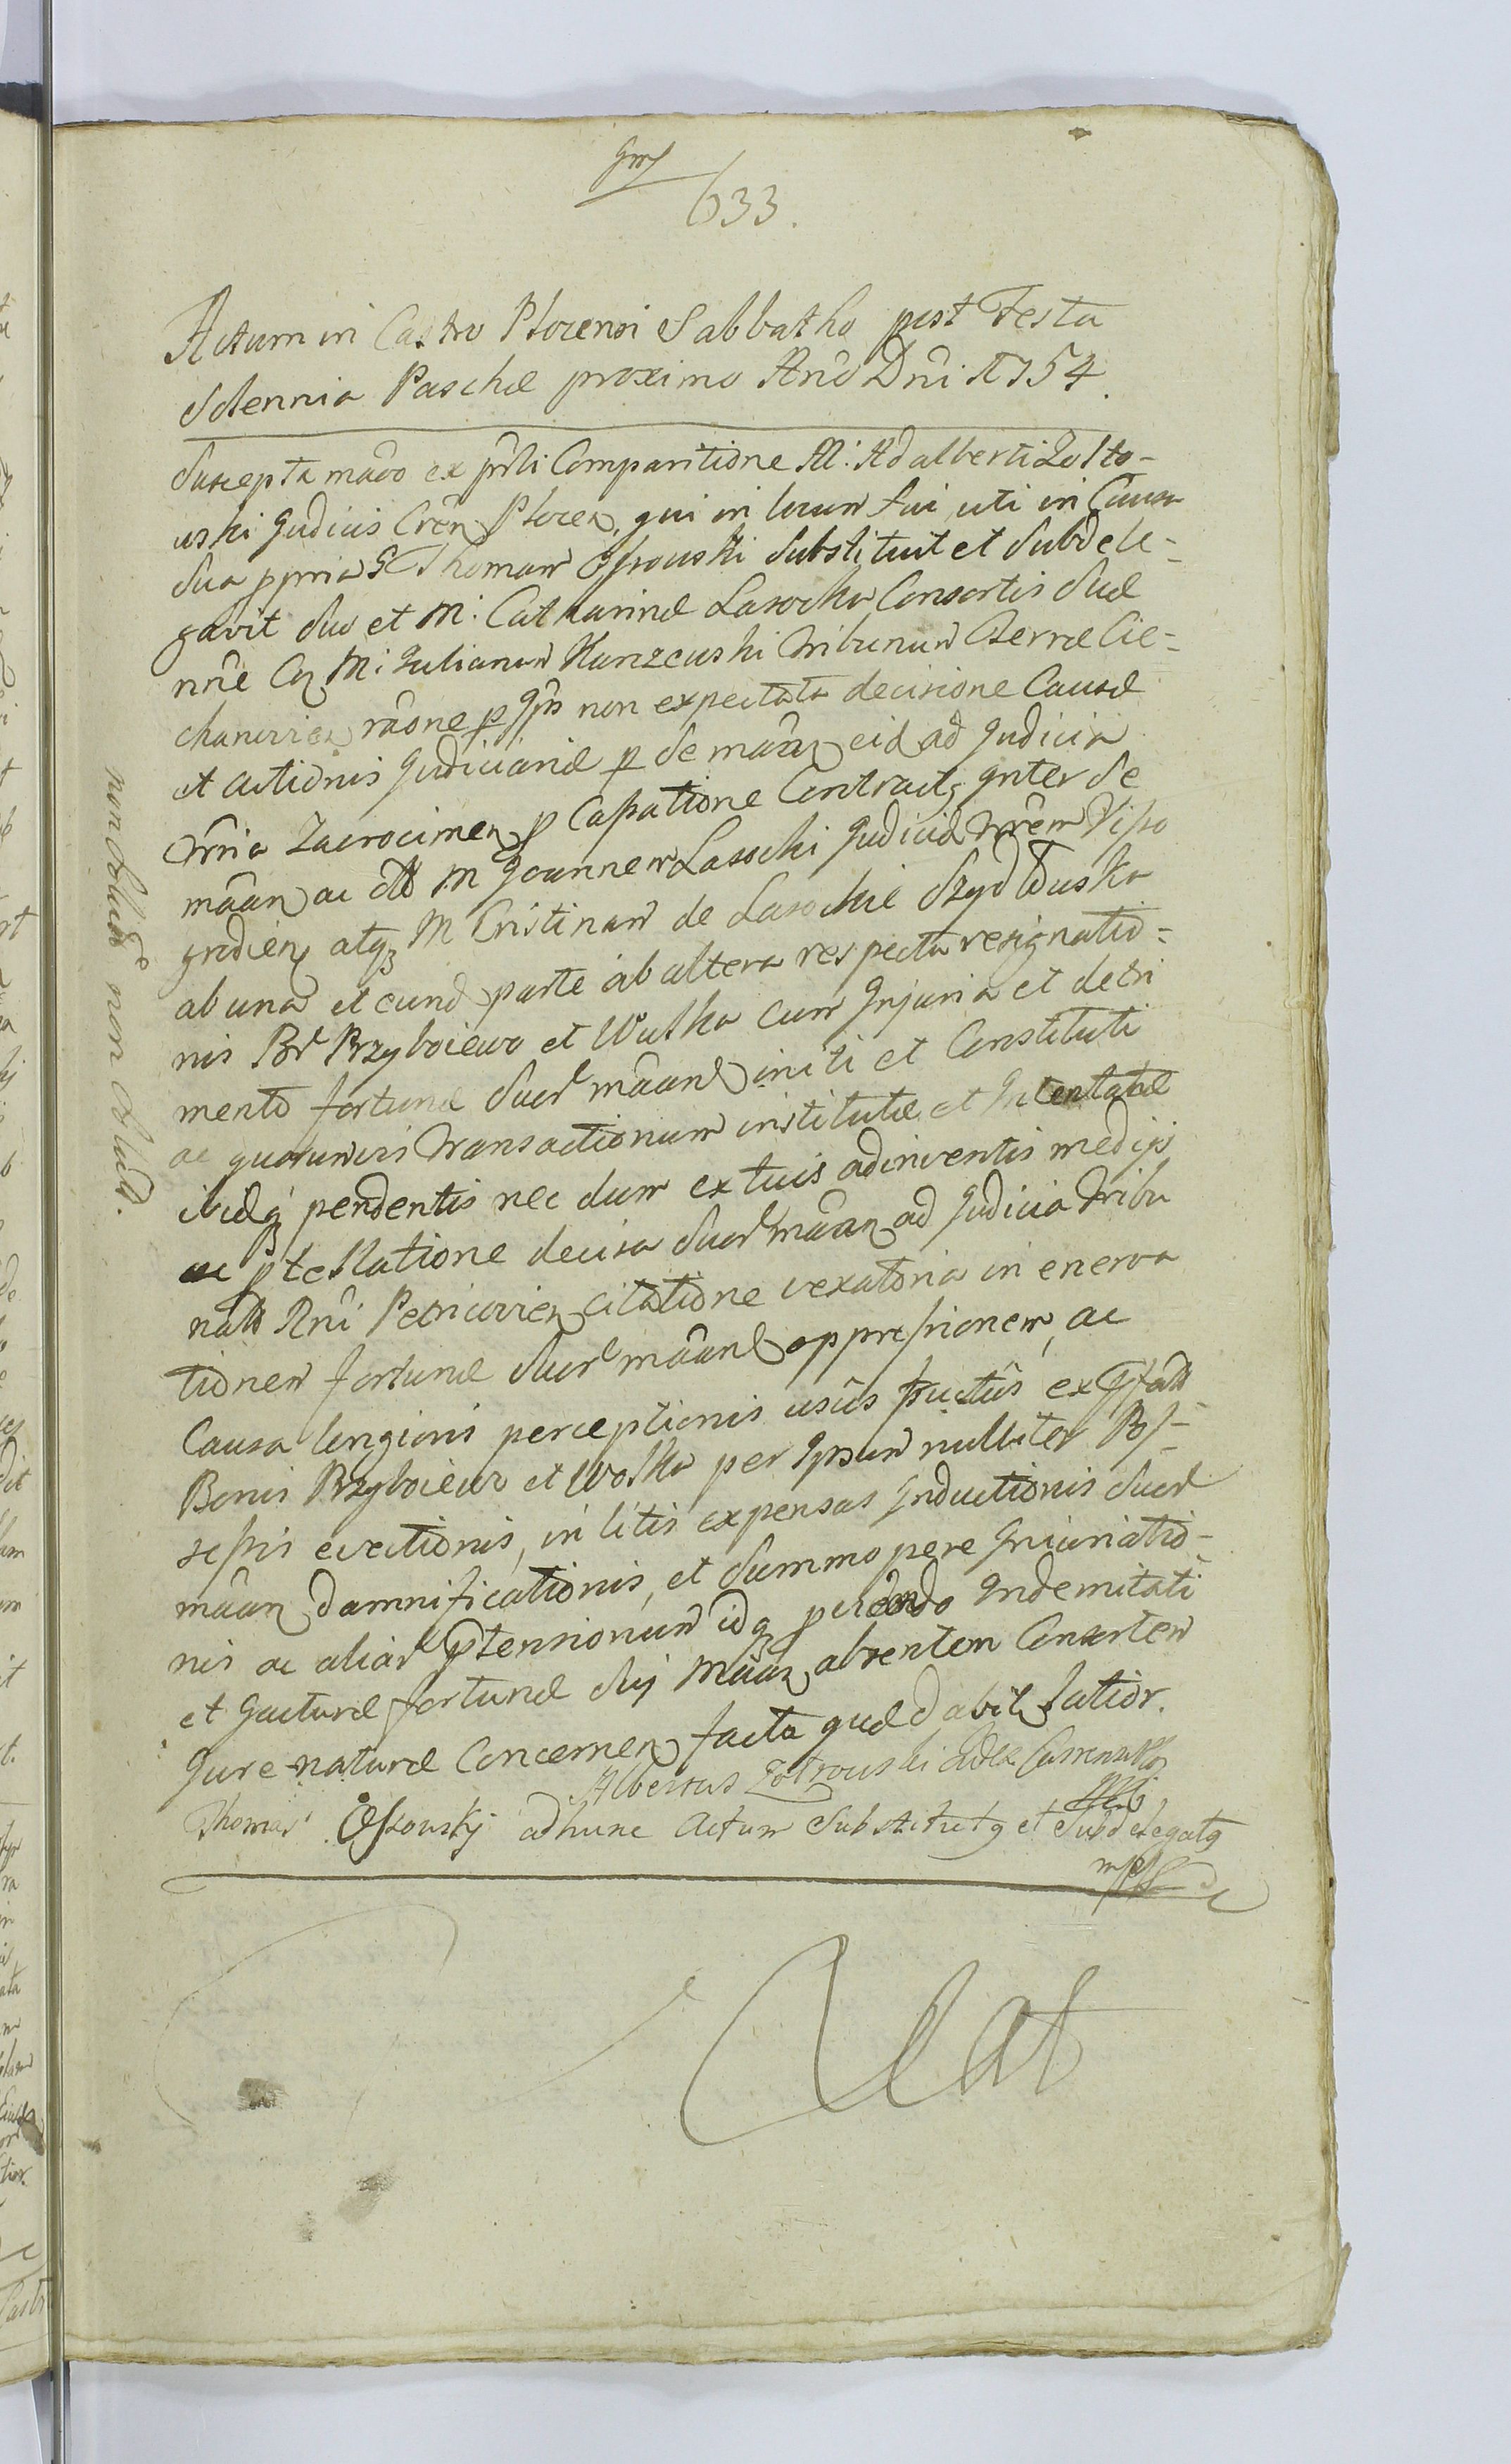 633.
Actum in Castro Plocensi Sabbatho post Festa
Solennia Paschae proximo Año Dñi 1754.
Suscepta mãdo ex pñli Comparitione M: Adalberti Zolto-
wski Judicis Creñ Plocen, qui in locum sui, uti in Causa
sua ppria G Thomam Ossowski Substituit et Subdele-
gavit suo et M: Catharinae Lasocka Consortis suae
nñe Cq M: Julianum Karzewski Tribunum Terrae Cie-
chanovien rãone p Ipñ non expectata decisione Causae
et actionis Judiciariae p se mãñ eid ad Judicia
Trria Zacrocimen p Cassatione Contractq Inter se
mãan ac M Joannem Lasocki Judicid Trrem Viso
gradien atqz M Cristinam de Lasockie Szydlowska
ab una et eund parte ab altera respectu resignatio-
nis Br Przyboiewo et Wulka cum Injuria et detri
mento fortunae suor mãan initi et Constituti
ac quorumvis Transactionum institutae et Intentatae
ibidq pendentis nec dum ex tuis adinventis medijs
ac ptestatione decisa suor mãan ad Judicia Tribu
nall Rni Petricovien citatione vexatoria in enerva
tionem fortunae suor mãan oppressionem, ac
Causa longioris perceptionis usûs fructûs ex
Bonis Przyboiewo et Wolka per Ipsum nulliter Pos-
sessis evectionis, in litis expensas Inductionis suor
mãan damnificationis, et summopere Iniuriatio-
nis ac aliar ptensionum idq Indemnitati
et Jacturae fortunae sui mãan absentem Consortem
Jure naturae Concernen facta quae dabit latior.
Albertus Zoltowski
Thomas Ossowskj ad hunc Actum Substitutq et Subdelegatq
mpp
non Solud non Solud.